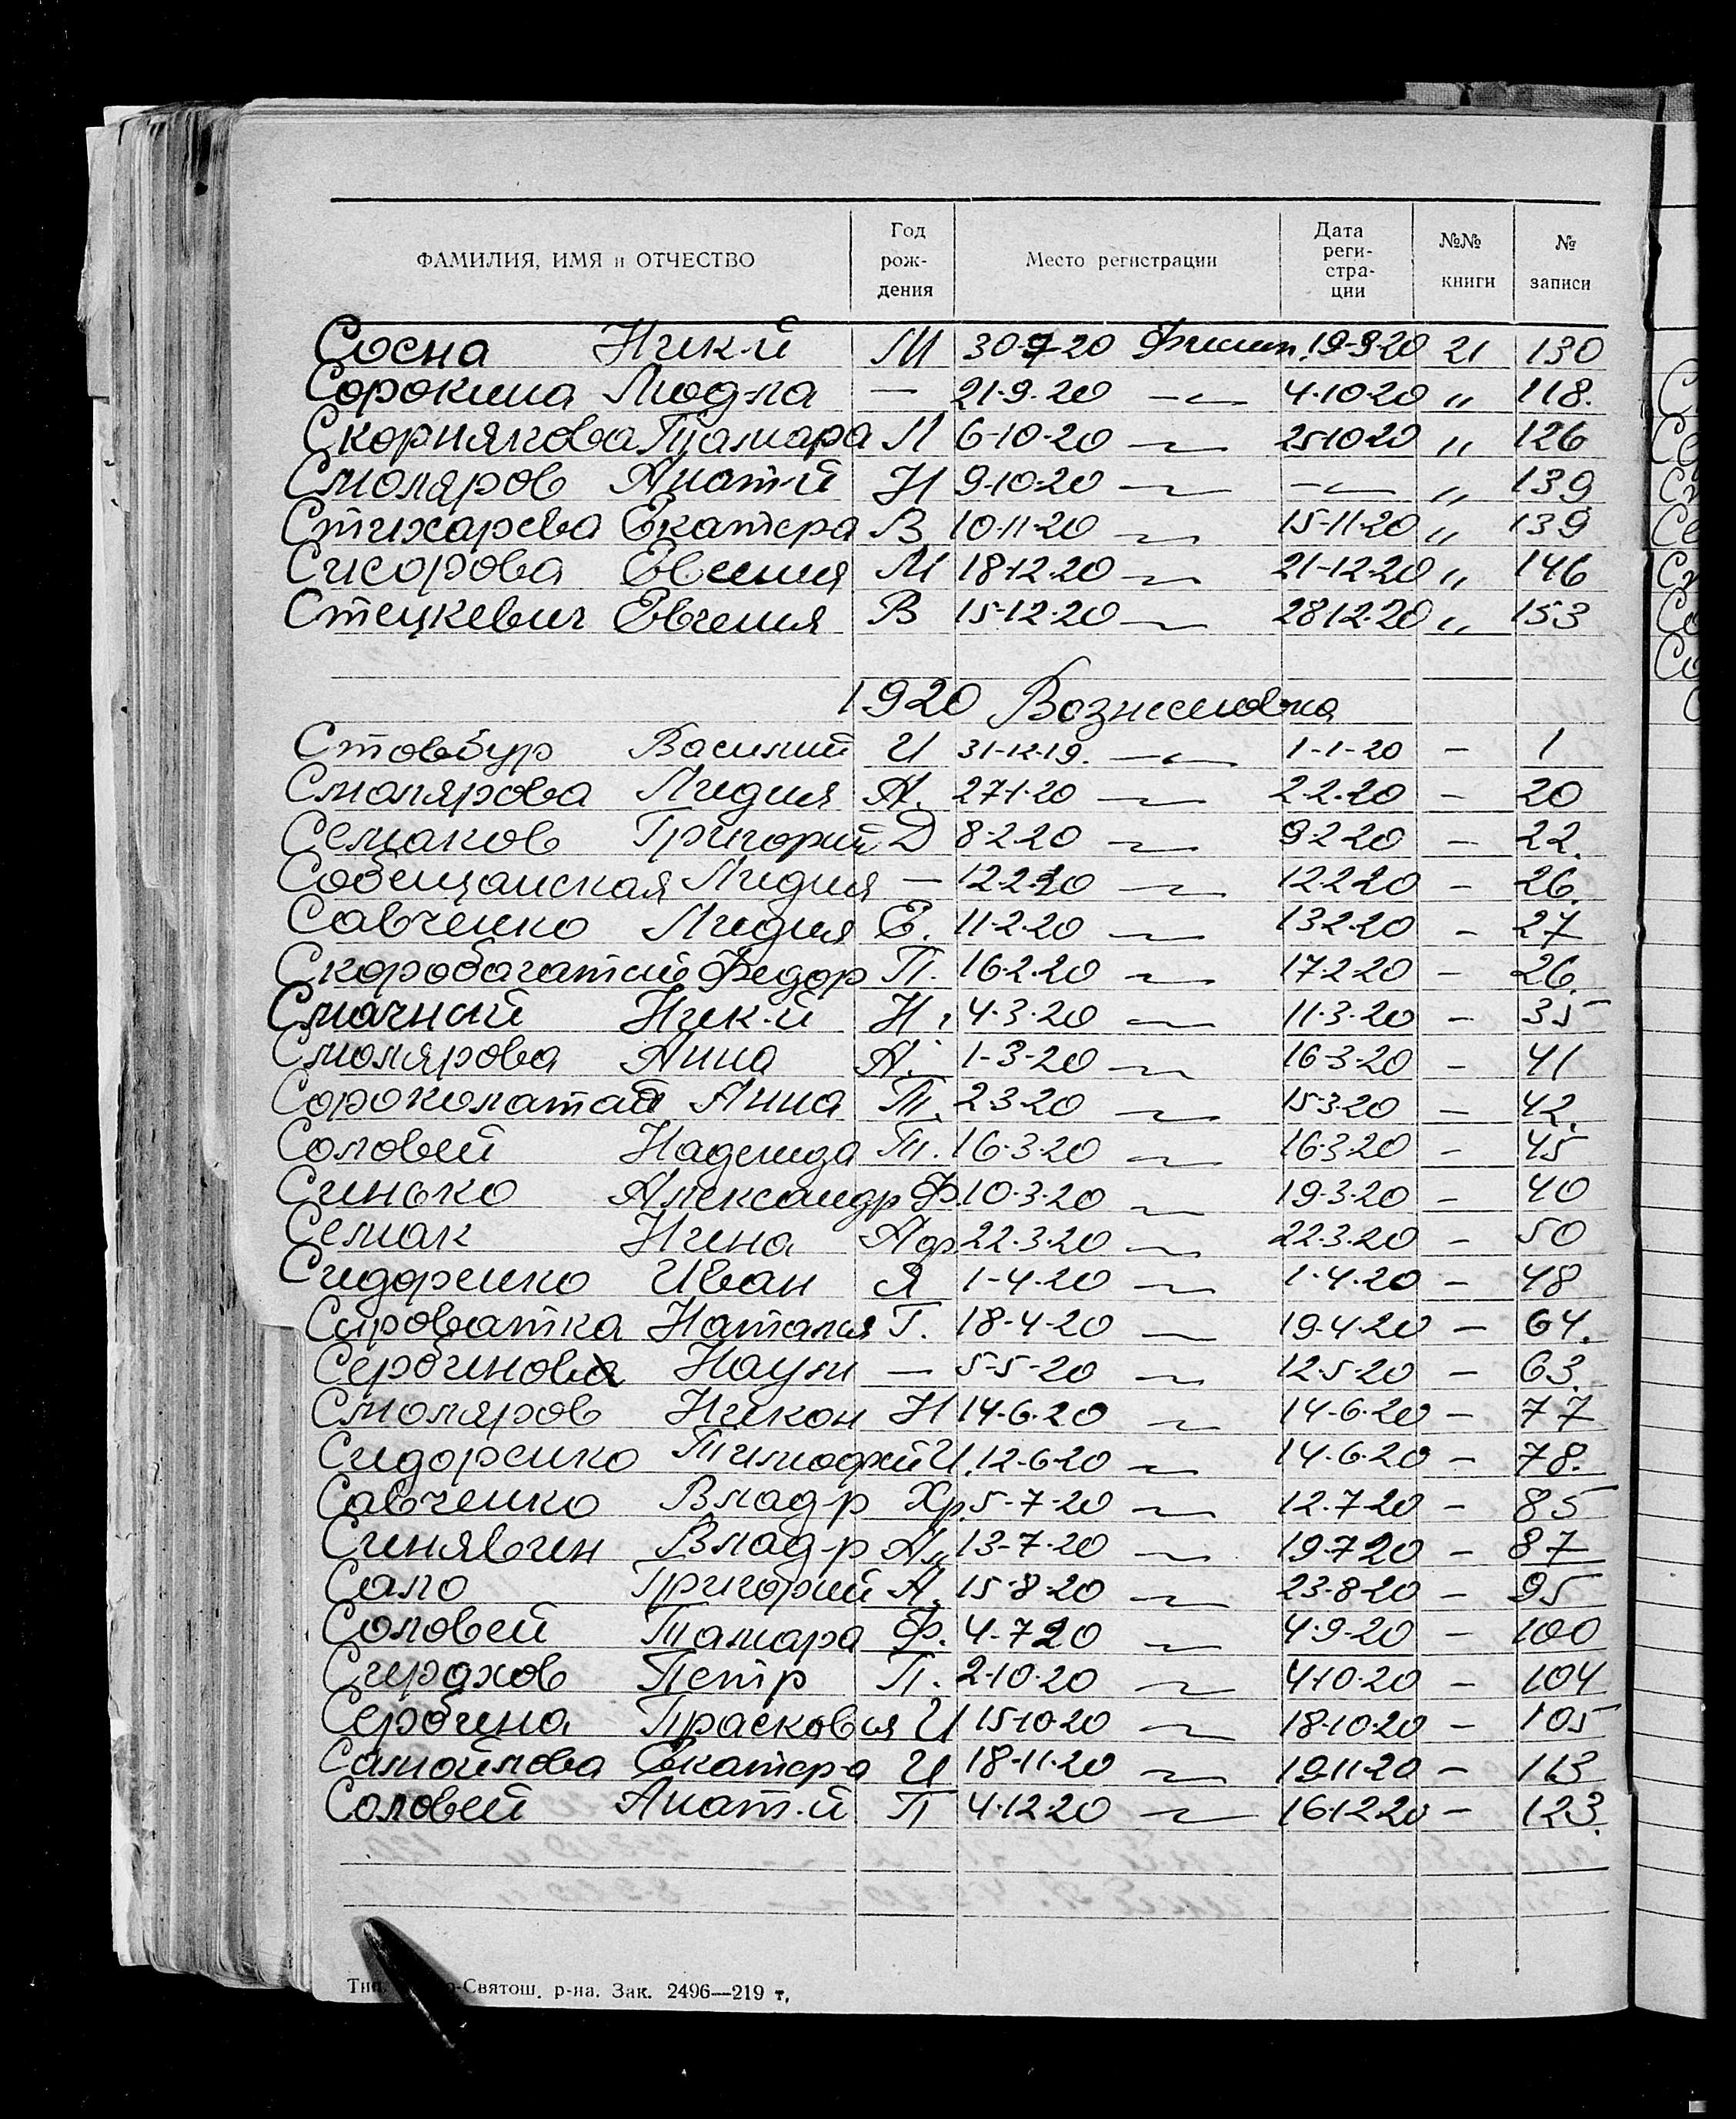 ФАМИЛИЯ, ИМЯ и ОТЧЕСТВО Год рож-дения Место регистрации Дата реги-стра-ции №№ книги № записи
Сосна Ник-й М 30-7-20 19-9-20 21 130
Сорокина Люд-ла — 21-9-20 —〃— 4-10-20 〃 118.
Скорнякова Тамара М 6-10-20 —〃— 25-10-20 〃 126
Смоляров Анат-й Н 9-10-20 —〃— —〃— 〃 139
Стихарева Екатера В 10-11-20 —〃— 15-11-20 〃 139
Сисорова Евгения М 18-12-20 —〃— 21-12-20 〃 146
Стецкевич Евгения В 15-12-20 —〃— 28-12-20 〃 153
1920 Вознесеновка
Стовбур Василий И 31-12-19. —〃— 1-1-20 — 1
Смолярова Лидия А. 27-1-20 —〃— 2-2-20 — 20
Семаков Григорий Д 8-2-20 —〃— 9-2-20 — 22.
Собещанская Лидия — 12-2-20 —〃— 12-2-20 — 26.
Савченко Лидия Е. 11-2-20 —〃— 13-2-20 — 27
Скоробогатый Федор П. 16-2-20 —〃— 17-2-20 — 26.
Смачный Ник-й Н. 4-3-20 —〃— 11-3-20 — 35
Смолярова Анна А. 1-3-20 —〃— 16-3-20 — 41
Сороколатая Анна Т. 2-3-20 —〃— 15-3-20 — 42.
Соловей Надежда Т. 16-3-20 —〃— 16-3-20 — 45
Синько Александр Ф. 10-3-20 —〃— 19-3-20 — 40
Семак Нина Адр 22-3-20 —〃— 22-3-20 — 50
Сидоренко Иван Я 1-4-20 —〃— 1-4-20 — 48
Сыроватка Наталия Г. 18-4-20 —〃— 19-4-20 — 64.
Сербинова Наум — 5-5-20 —〃— 12-5-20 — 63.
Смоляров Никон Н 14-6-20 —〃— 14-6-20 — 77
Сидоренко Тимофей И. 12-6-20 —〃— 14-6-20 — 78.
Савченко Влад-р Хр. 5-7-20 —〃— 12-7-20 — 85
Синявин Влад-р 13-7-20 —〃— 19-7-20 — 87
Сало Григорий А. 15-8-20 —〃— 23-8-20 — 95
Соловей Тамара Ф. 4-7-20 —〃— 4-9-20 — 100
Петр П. 2-10-20 —〃— 4-10-20 — 104
Сербина Прасковья И 15-10-20 —〃— 18-10-20 — 105
Самойлова Екатер-а И 18-11-20 —〃— 19-11-20 — 113
Соловей Анат-й П 4-12-20 —〃— 16-12-20 — 123.
Тип. -Святош. р-на. Зак. 2496—219 т.